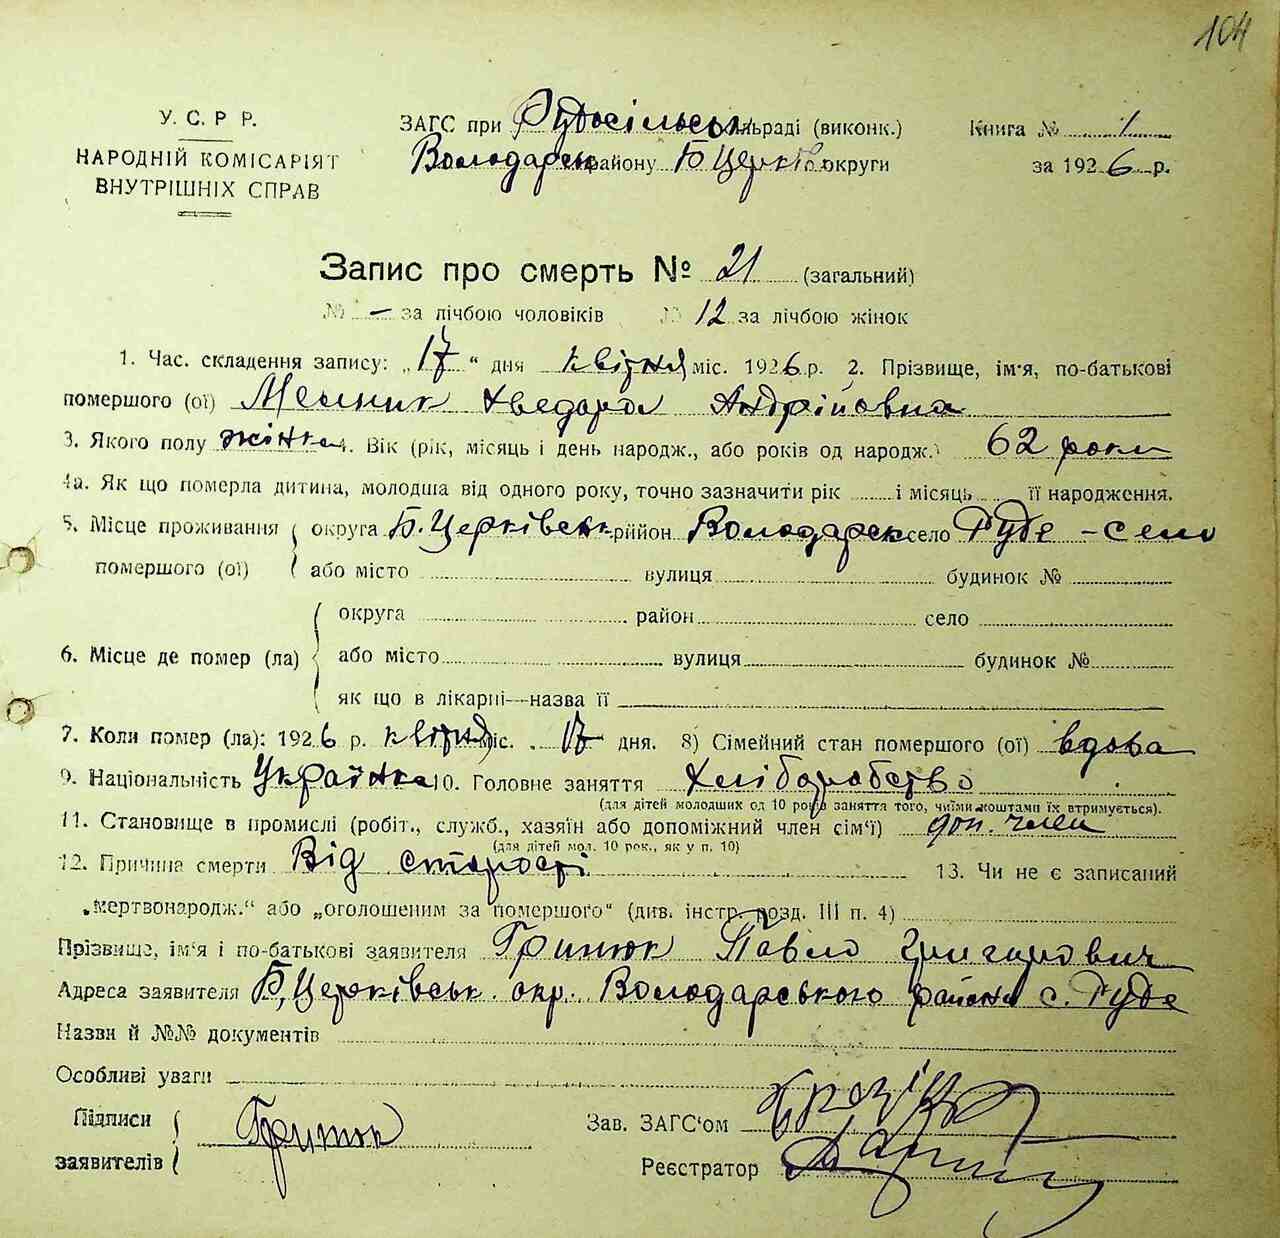 104
У. С. Р. Р.
НАРОДНІЙ КОМІСАРІЯТ
ВНУТРІШНІХ СПРАВ
ЗАГС при Рудосільськ сільраді (виконк.)
Володарськ району Б Церків. округи
Книга № 1
за 1926 р.
Запис про смерть № 21 (загальний)
№ – за лічбою чоловіків № 12 за лічбою жінок
1. Час складення запису: „17“ дня квітня міс. 1926 р. 2. Прізвище, ім'я, по-батькові
помершого (ої) Мельник Хведора Андрійовна
3. Якого полу жінка 4. Вік (рік, місяць і день народж., або років од народж.) 62 роки
4а. Як що померла дитина, молодша від одного року, точно зазначити рік і місяць її народження.
5. Місце проживання помершого (ої) округа Б. Церківськ. район Володарськ село Руде - село
або місто вулиця будинок №
6. Місце де помер (ла) округа район село
або місто вулиця будинок №
як що в лікарні—назва її
7. Коли помер (ла): 1926 р. квітня міс. 17 дня. 8) Сімейний стан помершого (ої) вдова
9. Національність Українка 10. Головне заняття хліборобство
(для дітей молодших од 10 років заняття того, чиїми коштами їх втримується).
11. Становище в промислі (робіт., служб., хазяїн або допоміжний член сім'ї) доп. член
(для дітей мол. 10 рок., як у п. 10)
12. Причина смерти Від старості 13. Чи не є записаний
„мертвонародж.“ або „оголошеним за помершого“ (див. інстр. розд. III п. 4)
Прізвище, ім'я і по-батькові заявителя Гринюк Павло Григорович
Адреса заявителя Б, Церківськ. окр. Володарського району с. Руде
Назви й №№ документів
Особливі уваги
Підписи заявителів Гринюк
Зав. ЗАГС'ом
Реєстратор